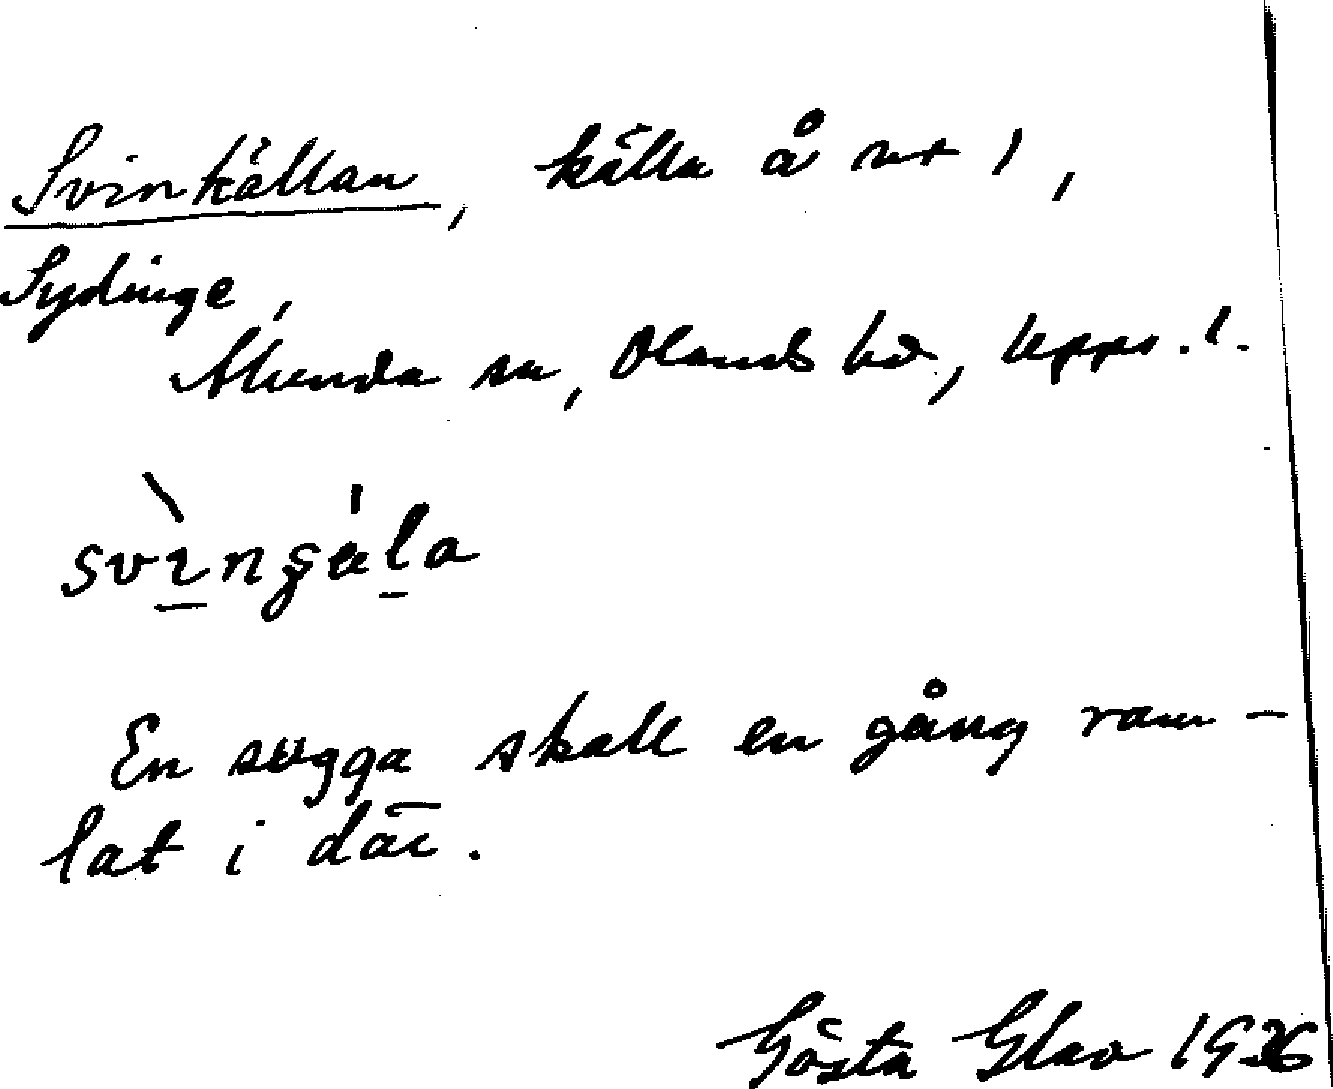 Svinkällan, källa å nr 1,
Sydinge,
Alunda sn, Olands hd, Upps. l.
En sugga skall en gång ram-
lat i där.
Gösta Glav 1936